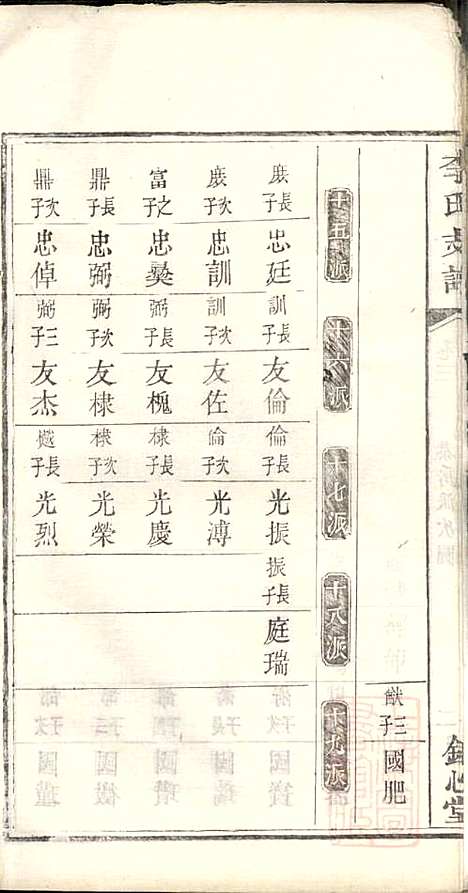 李氏支譜
卷三
鏡心堂
猷三子 國肥
十五派 十六派 十七派 十八派 十九派
長子 忠廷 訓長子 友倫 倫長子 光振 振長子 庭瑞
次子 忠訓 訓次子 友佐 倫次子 光溥
富之子 忠彝 弼長子 友槐 棣長子 光慶
鼎長子 忠弼 弼次子 友棣 棣次子 光榮
鼎次子 忠倬 弼三子 友杰 樾長子 光烈